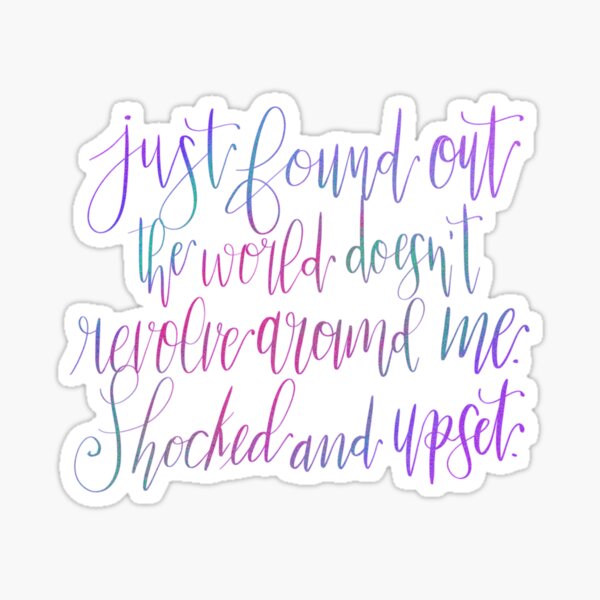 just found out
the world doesn't
revolve around me.
Shocked and upset.